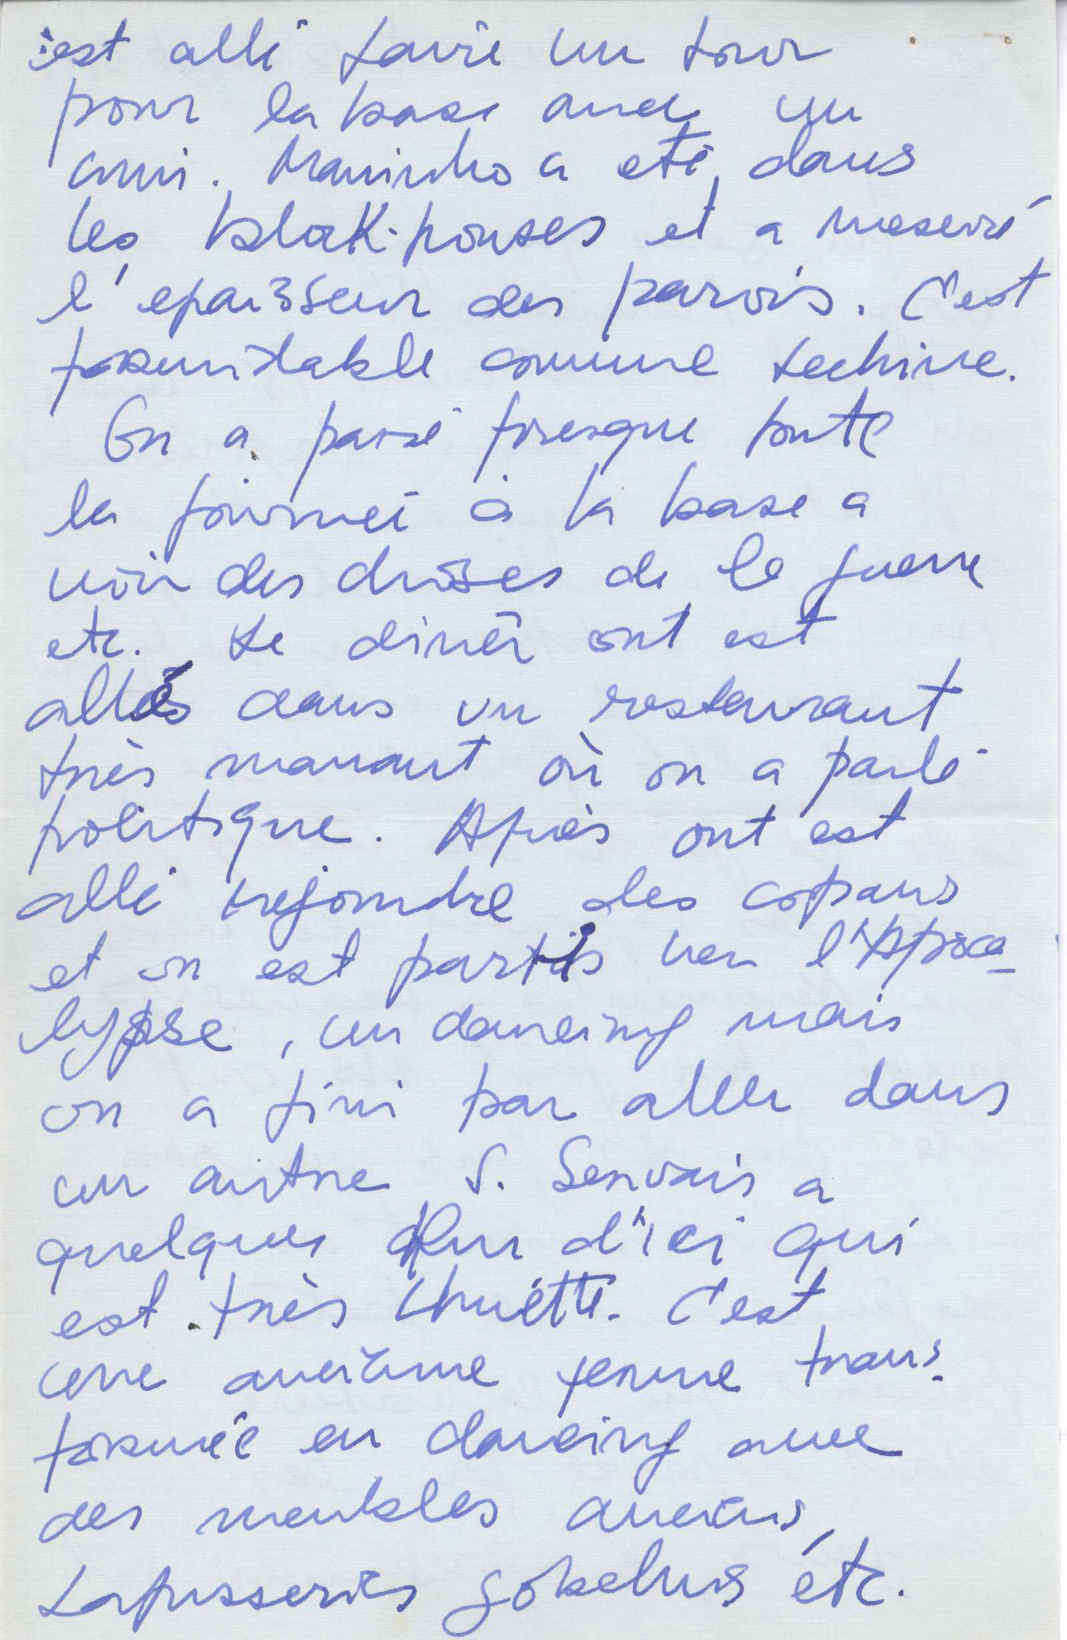 est allé faire un tour
pour la base avec un
ami. Maninho a eté dans
les block-houses et a meseuré
l'epaisseur des parois. C'est
formidable comme technine.
On a passé presque toute
la journeé à la base a
voir des choses de la guerre
etc. Le dinêr ont est
allés dans un restaurant
très marrant où on a parlé
politique. Après ont est
allé rejoindre des copans
et on est partis vers l'Apoca-
lypse, un dancing mais
on a fini par aller dans
un autre S. Servais a
quelques Km d'ici qui
est très chuétte. C'est
une anciènne ferme trans-
formée en dancing avec
des meubles anciens,
tapisseries gobelins étc.